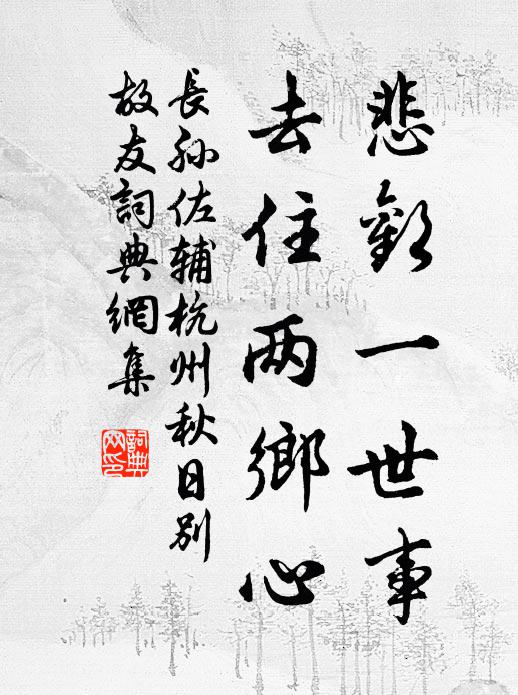 悲歡一世事
去住两鄉心
長孙佐輔杭州秋日别
故友詞典網集
詞典
网印